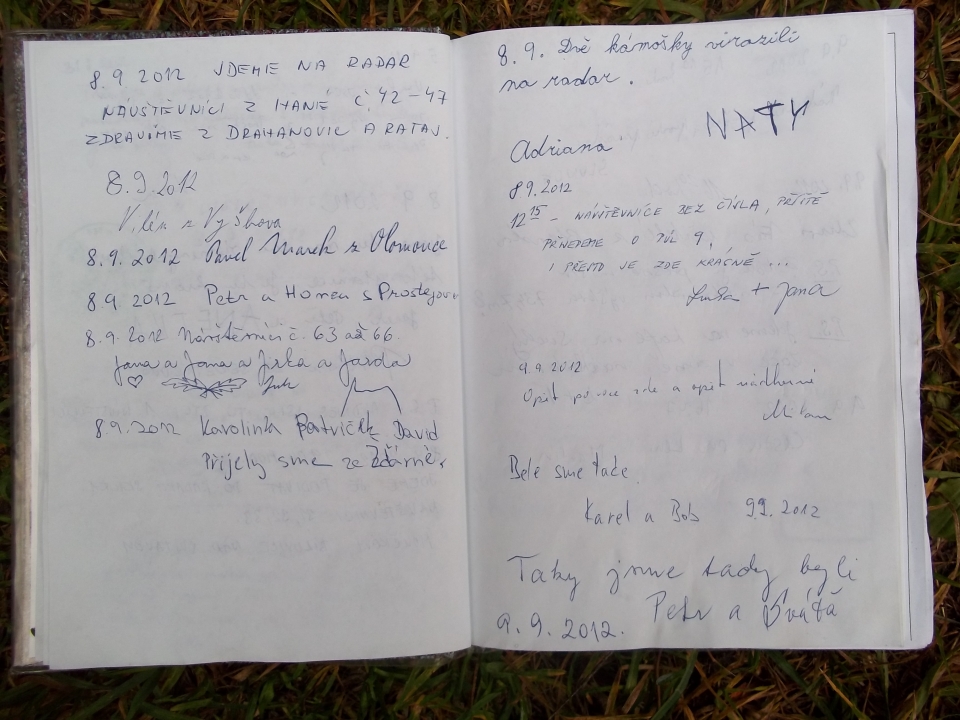 8.9 2012 JDEME NA RADAR
NÁVŠTĚVNÍCI Z HANÉ Č. 42 – 47
ZDRAVÍME Z DRAHANOVIC A RATAJ.
8.9.2012
Vilém z Vyškova
8.9.2012 Pavel Marek z Olomouce
8.9 2012 Petr a Honza s Prostějova
8.9.2012 Návštěvníci č. 63 až 66.
Jana a Jana a Jirka a Jarda
8.9.2012 Karolinka Patriček David
Přijely sme ze Žďárné.
8.9. Dvě kámošky virazili
na radar.
NATY
Adriana
8.9.2012
12 15 – NÁVŠTĚVNICE BEZ ČÍSLA, PŘÍŠTĚ
PŘIJEDEME O PŮL 9,
I PŘESTO JE ZDE KRÁSNĚ ...
+ Jana
9.9.2012
Opět po roce zde a opět nádherné
Milan
Bele sme tade.
Karel a Bob 9.9.2012
Taky jsme tady byli
Petr a
9.9.2012.